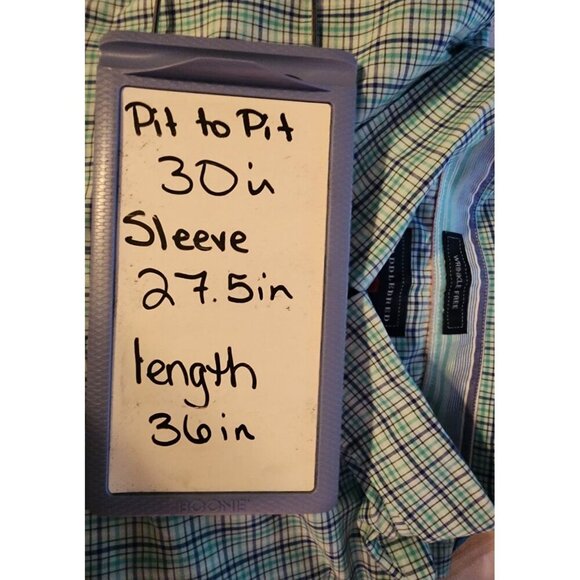 Pit to Pit
30in
Sleeve
27.5in
length
36in
BOONE
WRINKLE FREE